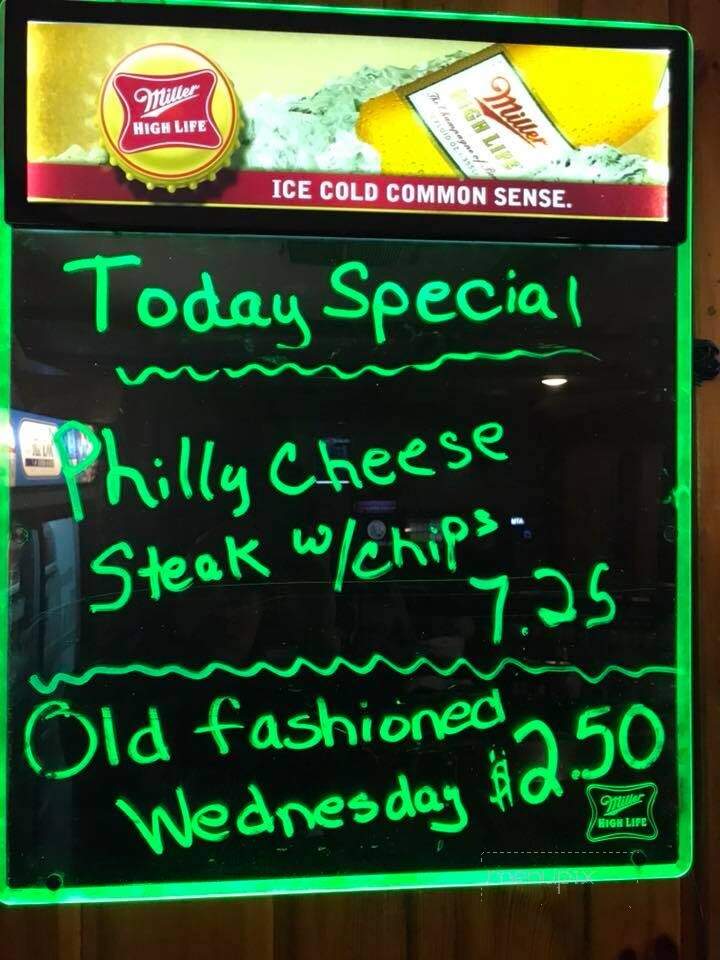 Miller
HIGH LIFE
Miller
HIGH LIFE
The Champagne of
ICE COLD COMMON SENSE.
Today Special
Philly Cheese
Steak w/chips
7.25
Old fashioned
Wednesday $2.50
Miller
HIGH LIFE
menupix